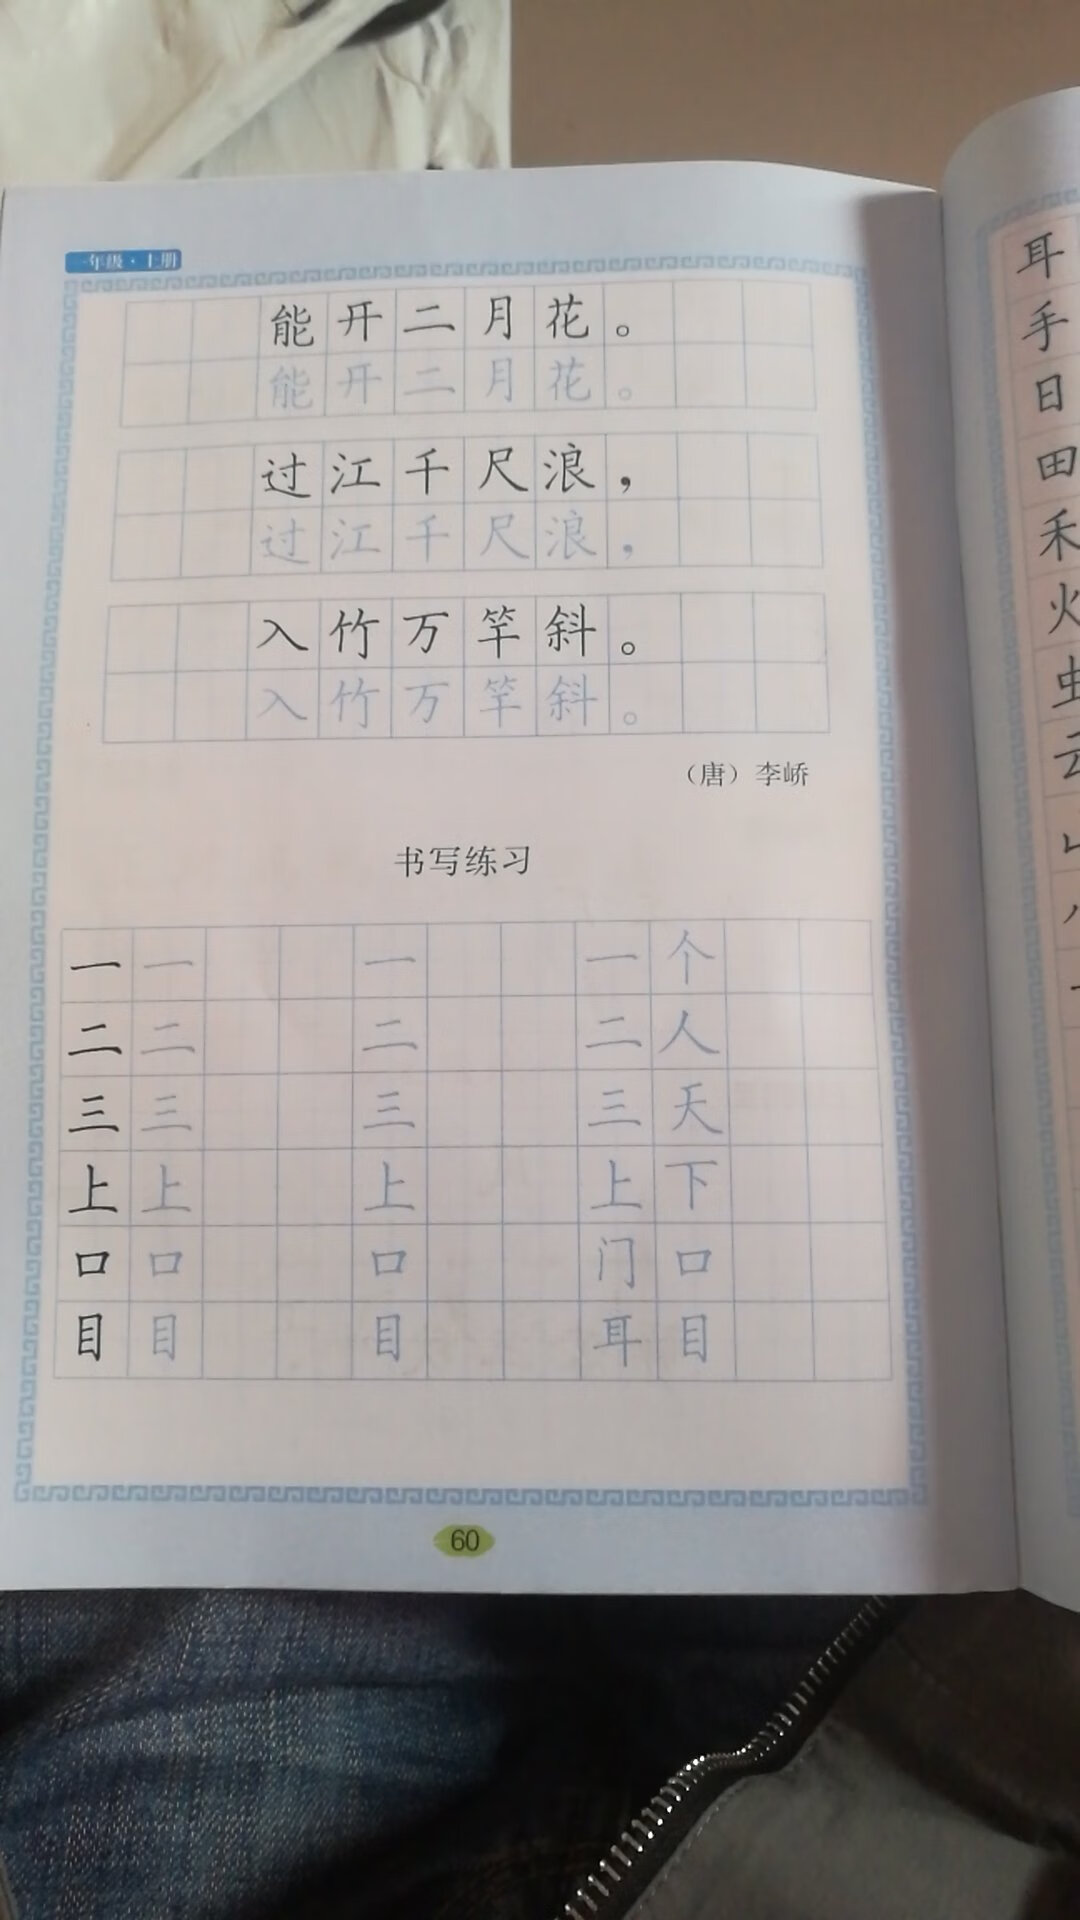 一年级·上册
能开二月花。
能开二月花。
过江千尺浪，
过江千尺浪，
入竹万竿斜。
入竹万竿斜。
（唐）李峤
书写练习
一 一 一 一个
二 二 二 二人
三 三 三 三天
上 上 上 上下
口 口 口 门口
目 目 目 耳目
60
耳
手
日
田
禾
火
虫
云